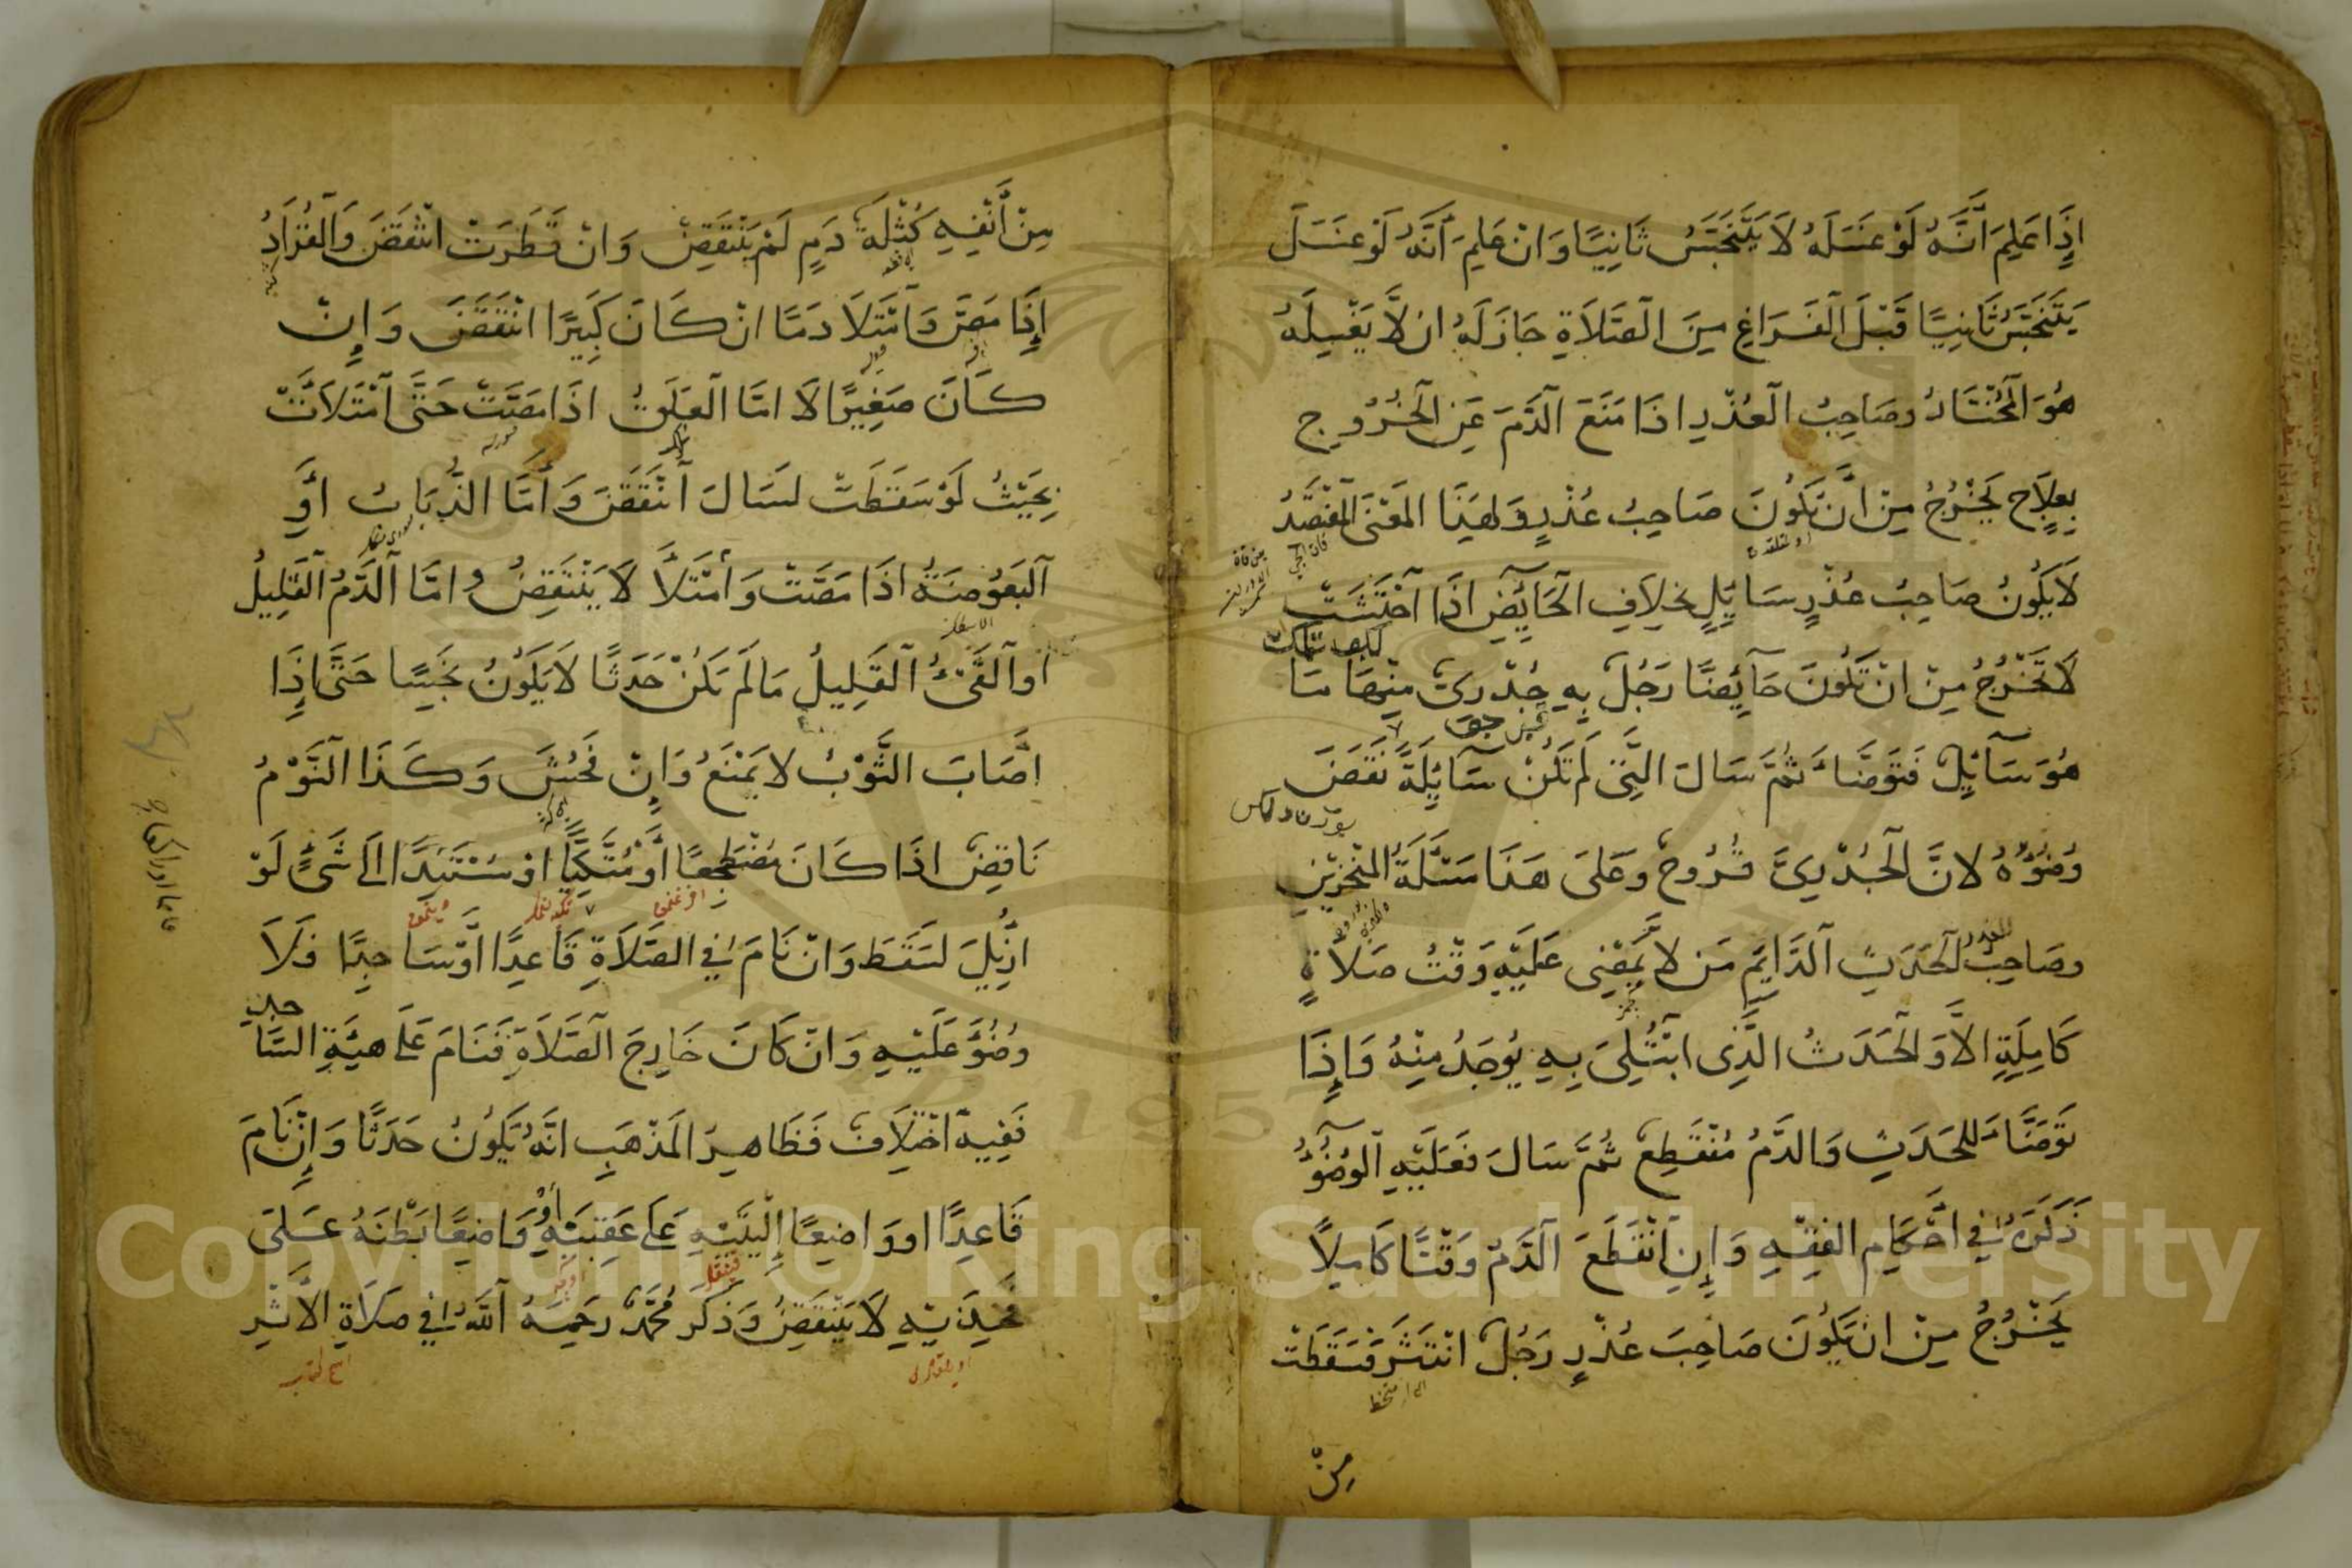 اِذَا عَلِمَ اَنَّهُ لَوْ غَسَلَهُ لَا يَتَنَجَّسُ ثَانِيًا وَاِنْ عَلِمَ اَنَّهُ لَوْ غَسَلَ
يَتَنَجَّسُ ثَانِيًا قَبْلَ الْفَرَاغِ مِنَ الصَّلَاةِ جَازَ لَهُ اَنْ لَّا يَغْسِلَهُ
هُوَ الْمُخْتَارُ وصَاحِبُ الْعُذْرِ اِذَا مَنَعَ الدَّمَ عَنِ الْخُرُوجِ
بِعِلَاجٍ يَخْرُجُ مِنْ اَنْ يَكُونَ صَاحِبُ عُذْرٍ وَلِهَذَا الْمَعْنَى الْمُفْتَصِدُ
لَا يَكُونُ صَاحِبُ عُذْرٍ سَايِلٍ بِخِلَافِ الْحَائِضِ اِذَا احْتَشَتْ
لَا تَخْرُجُ مِنْ اَنْ تَكُونَ حَائِضًا رَجُلٌ بِهِ جُدْرِىٌّ مِنْهَا مَا
هُوَ سَآئِلٌ فَتَوَضَّاءَ ثُمَّ سَالَ الَّتِى لَمْ تَكُنْ سَآئِلَةً نَقَضَ
وُضُوْءُهُ لِاَنَّ الْجُدْرِىَّ قُرُوحٌ وَعَلَى هَذَا مَسْئَلَةُ الْمَنْخِرَيْنِ
وصَاحِبُ الْحَدَثِ الدَّايِمِ مَنْ لَا يَمْضِى عَلَيْهِ وَقْتُ صَلَاةٍ
كَامِلَةٍ اِلَّا وَالْحَدَثُ الَّذِى ابْتُلِىَ بِهِ يُوجَدُ مِنْهُ وَاِذَا
تَوَضَّاءَ لِلْحَدَثِ وَالدَّمُ مُنْقَطِعٌ ثُمَّ سَالَ فَعَلَيْهِ الْوُضُوْءُ
ذَكَرَهُ فِي اَحْكَامِ الْفِقْهِ وَاِنِ انْقَطَعَ الدَّمُ وَقْتًا كَامِلًا
يَخْرُجُ مِنْ اَنْ يَكُونَ صَاحِبَ عُذْرٍ رَجُلٌ انْتَثَرَ فَسَقَطَتْ
مِنْ
مِنْ اَنْفِهِ كُتْلَةُ دَمٍ لَمْ يَنْتَقِضْ وَاِنْ قَطَرَتْ انْتَقَضَ وَالْقُرَادُ
اِذَا مَصَّ وَامْتَلَا دَمًا اِنْ كَانَ كَبِيرًا انْتَقَضَ وَاِنْ
كَانَ صَغِيرًا لَا امَّا الْعَلَقُ اِذَا مَصَّتْ حَتَّى امْتَلَأَتْ
بِحَيْثُ لَوْ سَقَطَتْ لَسَالَ انْتَقَضَ وَاَمَّا الذُّبَابُ اَوِ
الْبَعُوضَةُ اِذَا مَصَّتْ وَامْتَلَأَ لَا يَنْتَقِضُ وامَّا الدَّمُ الْقَلِيلُ
اَوِ الْقَىْءُ الْقَلِيلُ مَا لَمْ يَكُنْ حَدَثًا لَا يَكُونُ نَجِسًا حَتَّى اِذَا
اَصَابَ الثَّوْبُ لَا يَمْنَعُ وَاِنْ فَحُشَ وَكَذَا النَّوْمُ
نَاقِضٌ اِذَا كَانَ مُضْطَجِعًا اَوْ مُتَّكِيًّا اَوْ مُسْتَنِدًا اِلَى شَىْءٍ لَوْ
اُزِيلَ لَسَقَطَ وَاِنْ نَامَ فِي الصَّلَاةِ قَاعِدًا اَوْ سَاجِدًا فَلَا
وُضُوءَ عَلَيْهِ وَاِنْ كَانَ خَارِجَ الصَّلَاةِ فَنَامَ عَلَى هَيْئَةِ السَّاجِدِ
فَفِيهِ اخْتِلَافٌ فَظَاهِرُ الْمَذْهَبِ اَنَّهُ يَكُونُ حَدَثًا وَاِنْ نَامَ
قَاعِدًا او وَاضِعًا اِلْيَتَيْهِ عَلَى عَقِبَيْهِ اَوْ وَاضِعًا بَطْنَهُ عَلَى
فَخِذَيْهِ لَا يَنْتَقِضُ وَذَكَرَ مُحَمَّدٌ رَحِمَهُ اللَّهُ فِي صَلَاةِ الْاَثَرِ
Copyright © King Saud University
1957